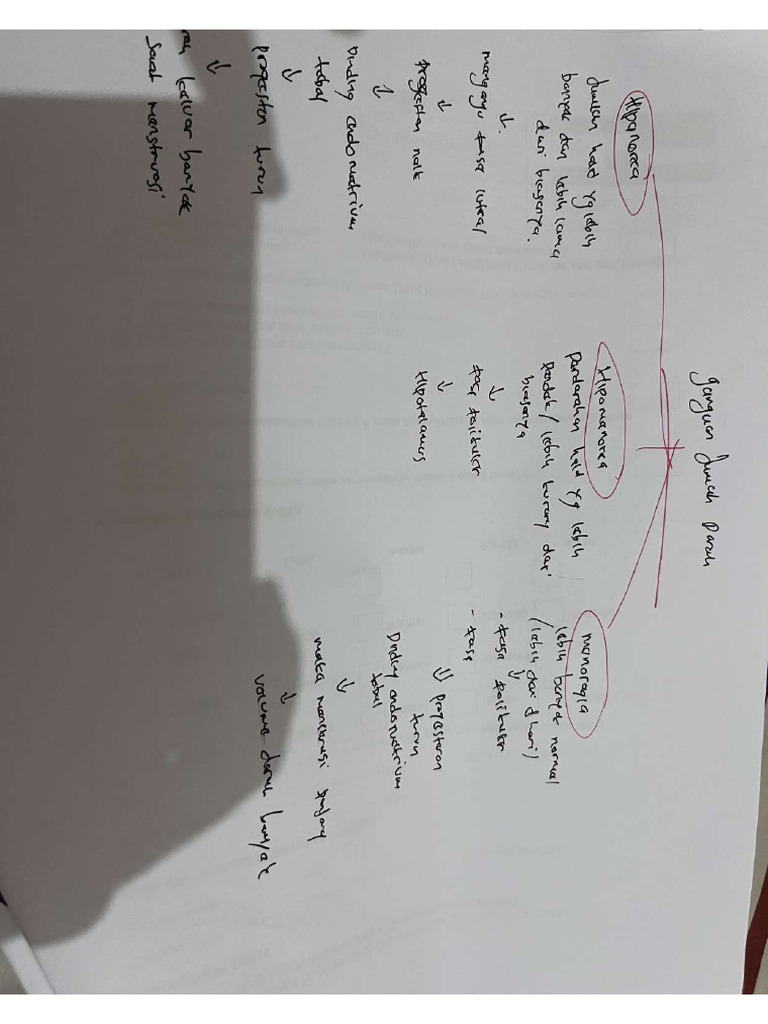 Ganguan Jumlah Darah
Hipomenorea
Jumlah haid yg lebih
banyak dan lebih lama
dari biasanya.
↓
mengangu fase luteal
↓
progesten naik
↓
Dinding endometrium
tebal
↓
progesten turun
↓
keluar banyak
Saat menstruasi
Hipomenorea
Pendarahan haid yg lebih
Pendek / lebih kurang dari
biasanya
↓
fase folikuler
↓
Hipotalamus
menoragia
lebih banyak normal
/ lebih dari hari)
- fase folikuler
- fase
↓
↓ Progesteron
turun
Dinding endometrium
tebal
↓
maka menstruasi panjang
↓
volume darah banyak